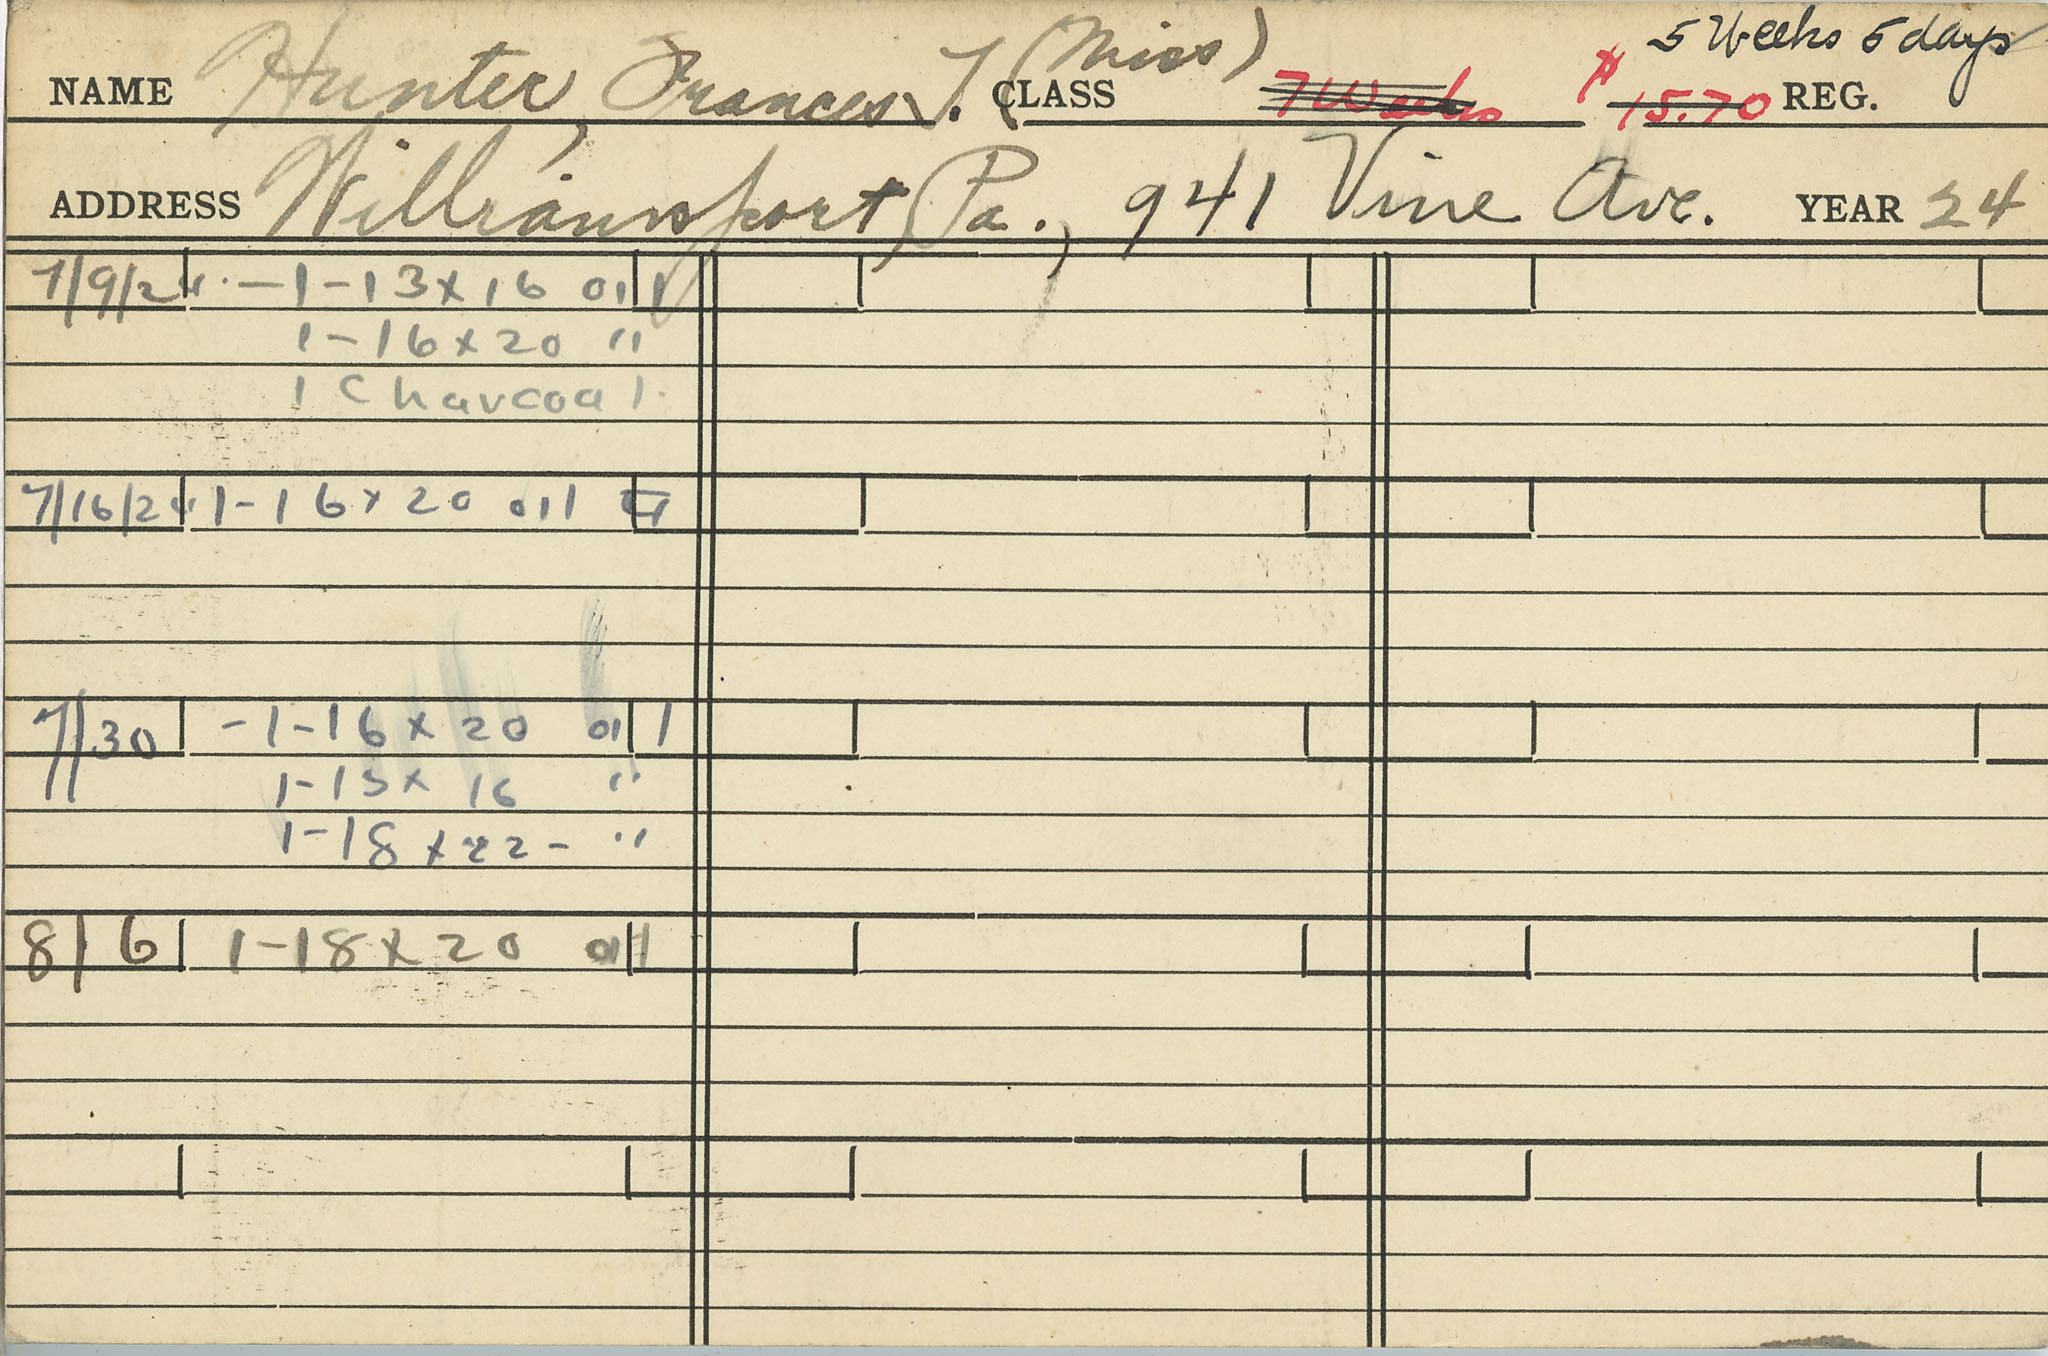 5 Weeks 5 days
NAME Hunter, Frances T. (Miss) CLASS 7 Weeks $15.70 REG.
ADDRESS Williamsport, Pa., 941 Vine Ave. YEAR 24
7/9/24. - 1-13x16 oil
1-16x20 "
1 Charcoal.
7/16/24 1-16x20 oil
7/30 -1-16x20 oil
1-13x16 "
1-18x22- "
8/6 1-18x20 oil